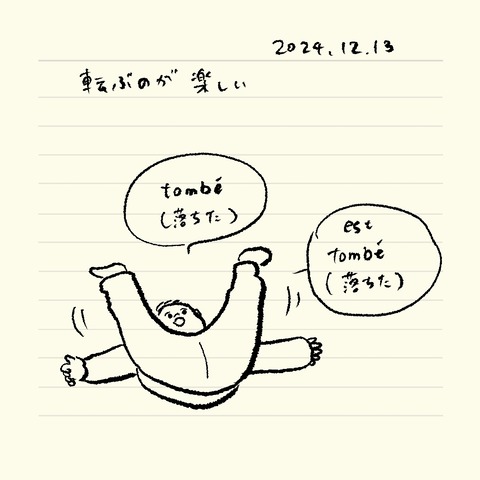 2024.12.13
転ぶのが 楽しい
tombé
(落ちた)
est
tombé
(落ちた)